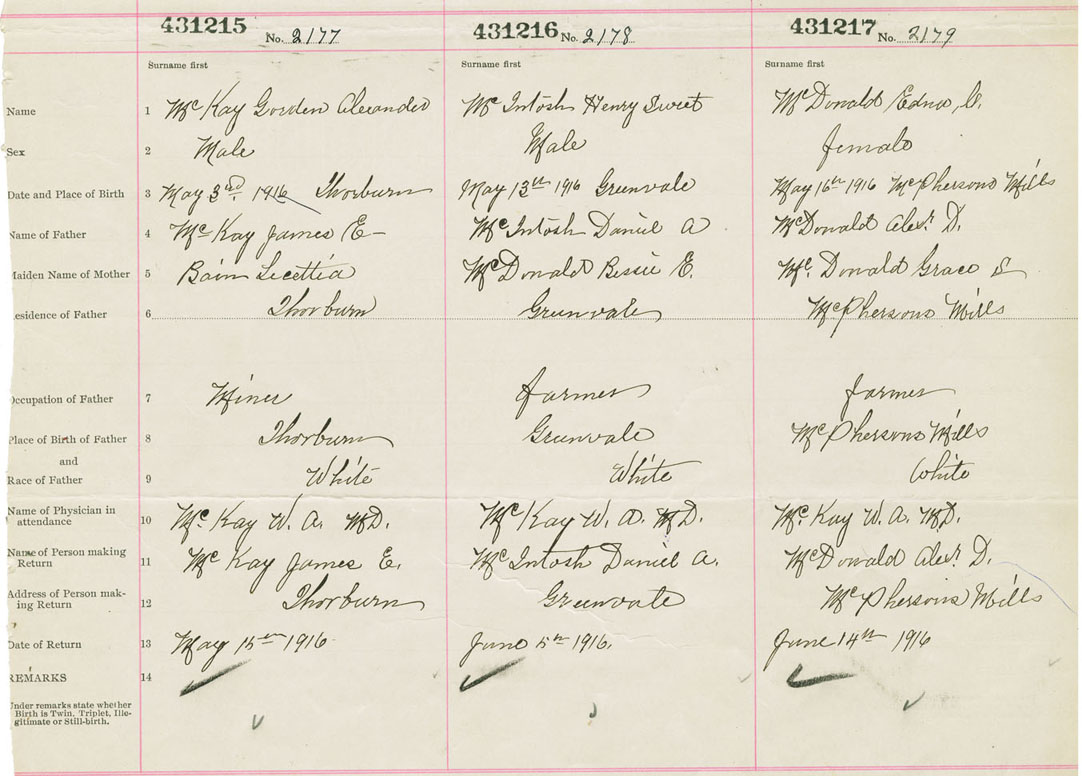 431215 No. 2177 431216 No. 2178 431217 No. 2179
Surname first Surname first Surname first
Name 1 McKay Gorden Alexander McIntosh Henry Sweet McDonald Edna C.
Sex 2 Male Male female
Date and Place of Birth 3 May 3rd 1916 Thorburn May 13th 1916 Greenvale May 16th 1916 McPhersons Mills
Name of Father 4 McKay James E McIntosh Daniel A McDonald Alexr. D.
Maiden Name of Mother 5 Bain McDonald Bessie E. Mc. Donald Grace S
esidence of Father 6 Thorburn Greenvale McPhersons Mills
Occupation of Father 7 Miner farmer farmer
Place of Birth of Father 8 Thorburn Greenvale McPhersons Mills
and
Race of Father 9 White White White
Name of Physician in
attendance 10 Mc. Kay W. A. MD. McKay W. A. MD. Mc. Kay W. A. MD.
Name of Person making
Return 11 McKay James E. McIntosh Daniel A. McDonald Alexr. D.
Address of Person mak-
ing Return 12 Thorburn Greenvale McPhersons Mills
Date of Return 13 May 15th 1916 June 5th 1916. June 14th 1916
REMARKS 14
Under remarks state whether
Birth is Twin, Triplet, Ille-
gitimate or Still-birth.